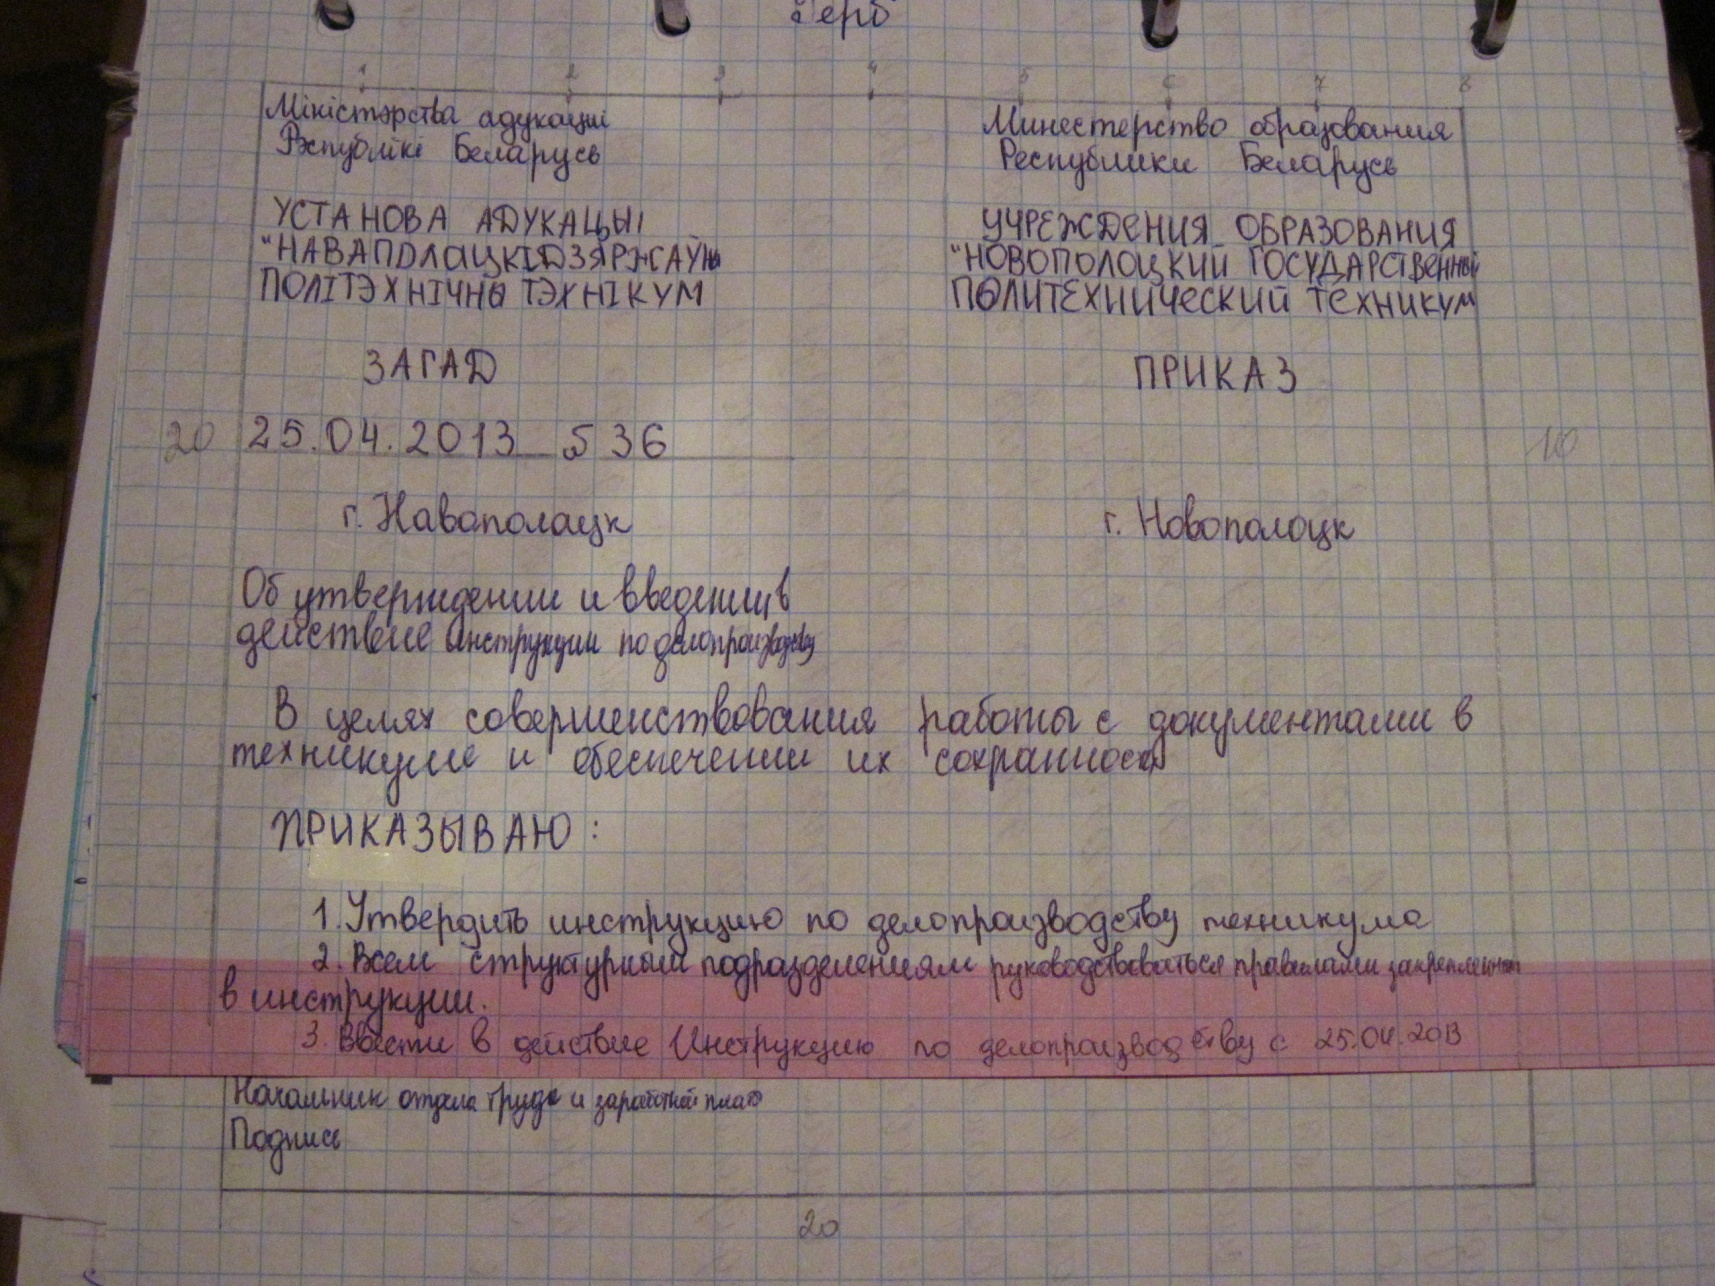 Герб
1 2 3 4 5 6 7 8
Міністэрства адукацыі
Рэспублікі Беларусь
УСТАНОВА АДУКАЦЫІ
"НАВАПОЛАЦКІ ДЗЯРЖАЎНЫ
ПОЛІТЭХНІЧНЫ ТЭХНІКУМ
ЗАГАД
Минестерство образования
Республики Беларусь
УЧРЕЖДЕНИЯ ОБРАЗОВАНИЯ
"НОВОПОЛОЦКИЙ ГОСУДАРСТВЕННЫЙ
ПОЛИТЕХНИЧЕСКИЙ ТЕХНИКУМ
ПРИКАЗ
20 25.04.2013 36 10
г. Наваполацк
г. Новополоцк
Об утверждении и введении в
действие инструкции по делопроизводству
В целях совершенствования работы с документами в
техникуме и обеспечении их сохранности
ПРИКАЗЫВАЮ:
1. Утвердить инструкцию по делопроизводству техникума
2. Всем структурным подразделениям руководствоваться правилами закрепленными
в инструкции.
3. Ввести в действие Инструкцию по делопроизводству с 25.04.2013
Начальник отдела труда и заработной платы
Подпись
20